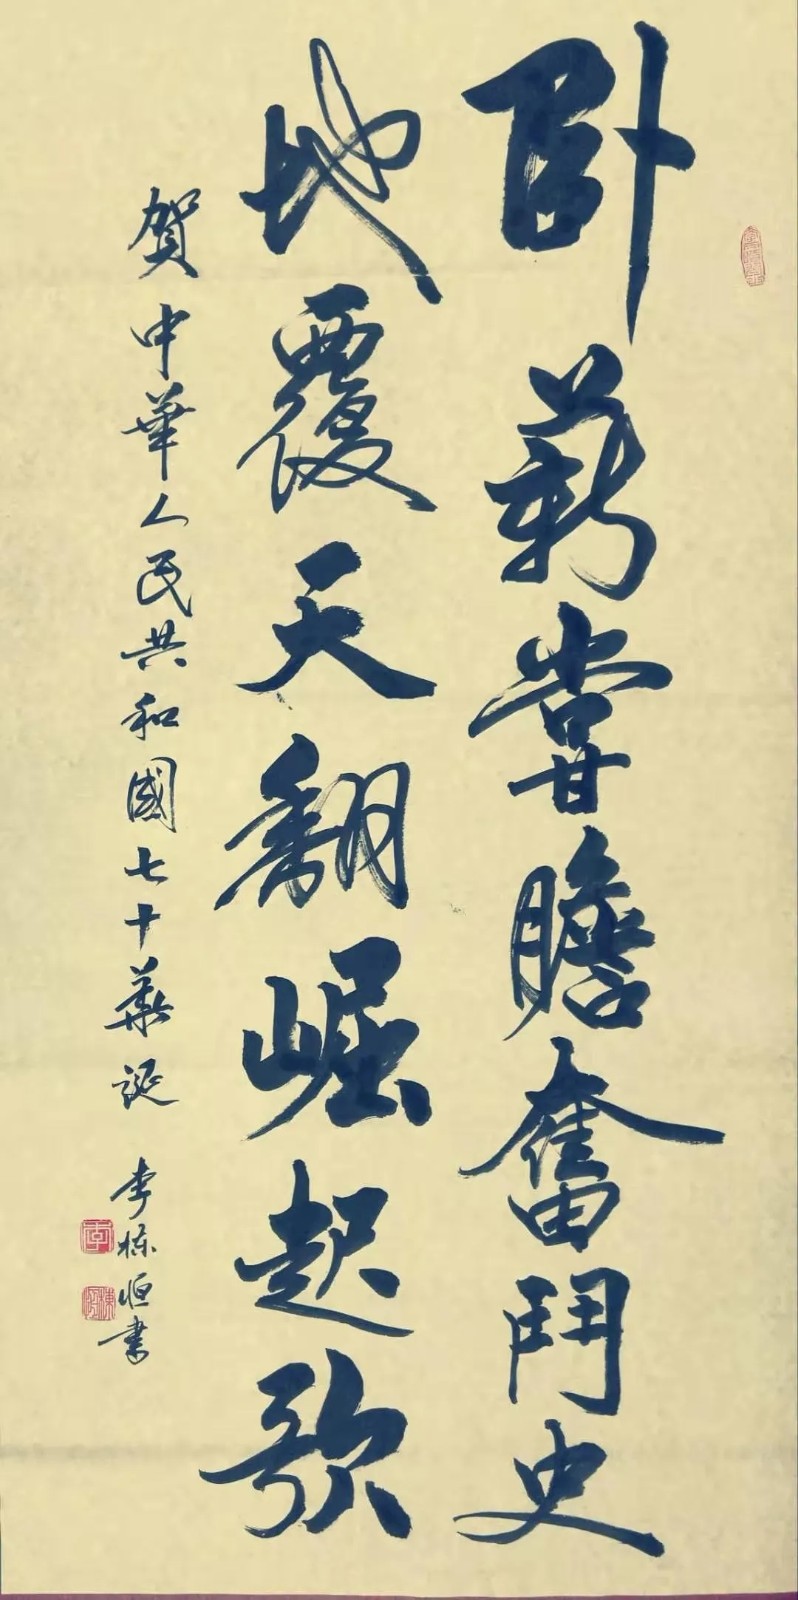 卧薪嘗膽奮鬥史
地覆天翻崛起歌
賀中華人民共和國七十華誕
李棟恒書